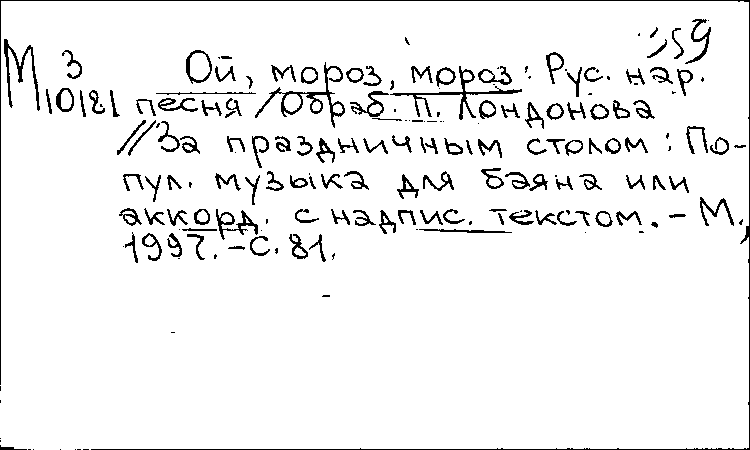 359
М 3 Ой, мороз, мороз: Рус. нар.
10181 песня / Обраб. П. Лондонова
// За праздничным столом: По-
пул. музыка для баяна или
аккорд. с надпис. текстом. - М.,
1997. - С. 81.